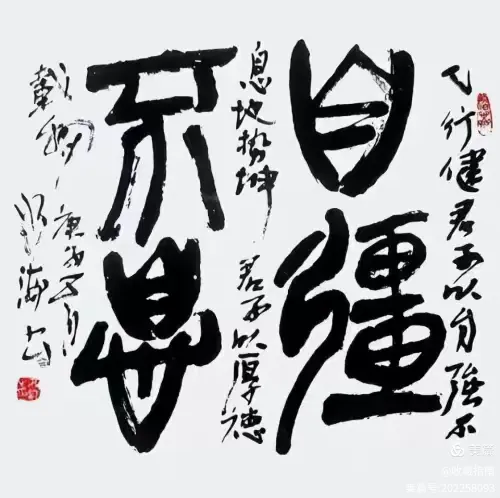 天行健君子以自強不
自彊
息地势坤君子以厚德
不息
載物庚子五月
海书
美篇
美篇号:202258993